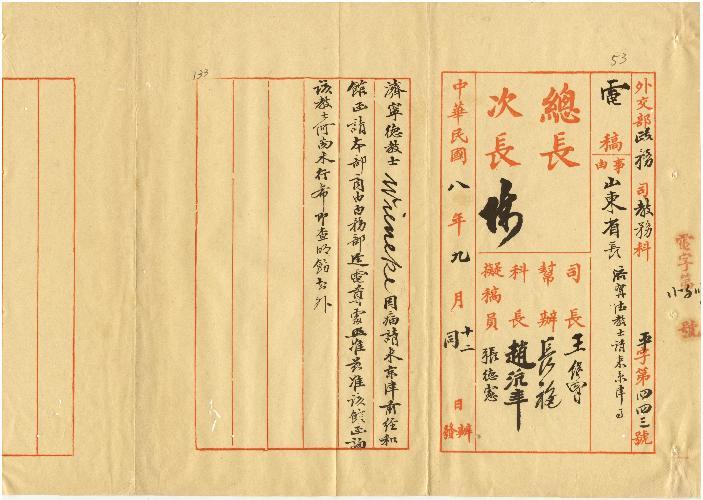 53
外交部政務司教務科 平字第四四三號
電稿
事由
山東省長 濟寧德教士請來京津事
總長
次長
司長 王
幫辦 長
科長 趙沆年
擬稿員 張德憲
中華民國八年九月十二日
同
辦
發
電字第 號
133
濟寧德教士Wineke因病請來京津前經和
館函請本部商由內務部迭電尊處照准茲准該館函詢
該教士何尚未行希即查明飭知外